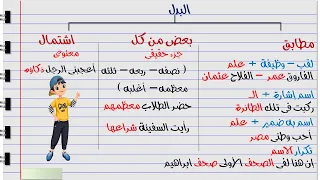 البدل
مطابق
بعض من كل
اشتمال
جزء حقيقى
معنوى
لقب - وظيفة + علم
الفاروق عمر - الفلاح عثمان
اسم اشارة + الـ
ركبت فى تلك الطائرة
اسم به ضمير + علم
أحب وطنى مصر
تكرار الاسم
إن هذا لفى الصحف الأولى صحف ابراهيم
( نصفه - ربعه - ثلثه
معظمه - أغلبه )
حضر الطلاب معظمهم
رأيت السفينة شراعها
أعجبنى الرجل ذكاؤه